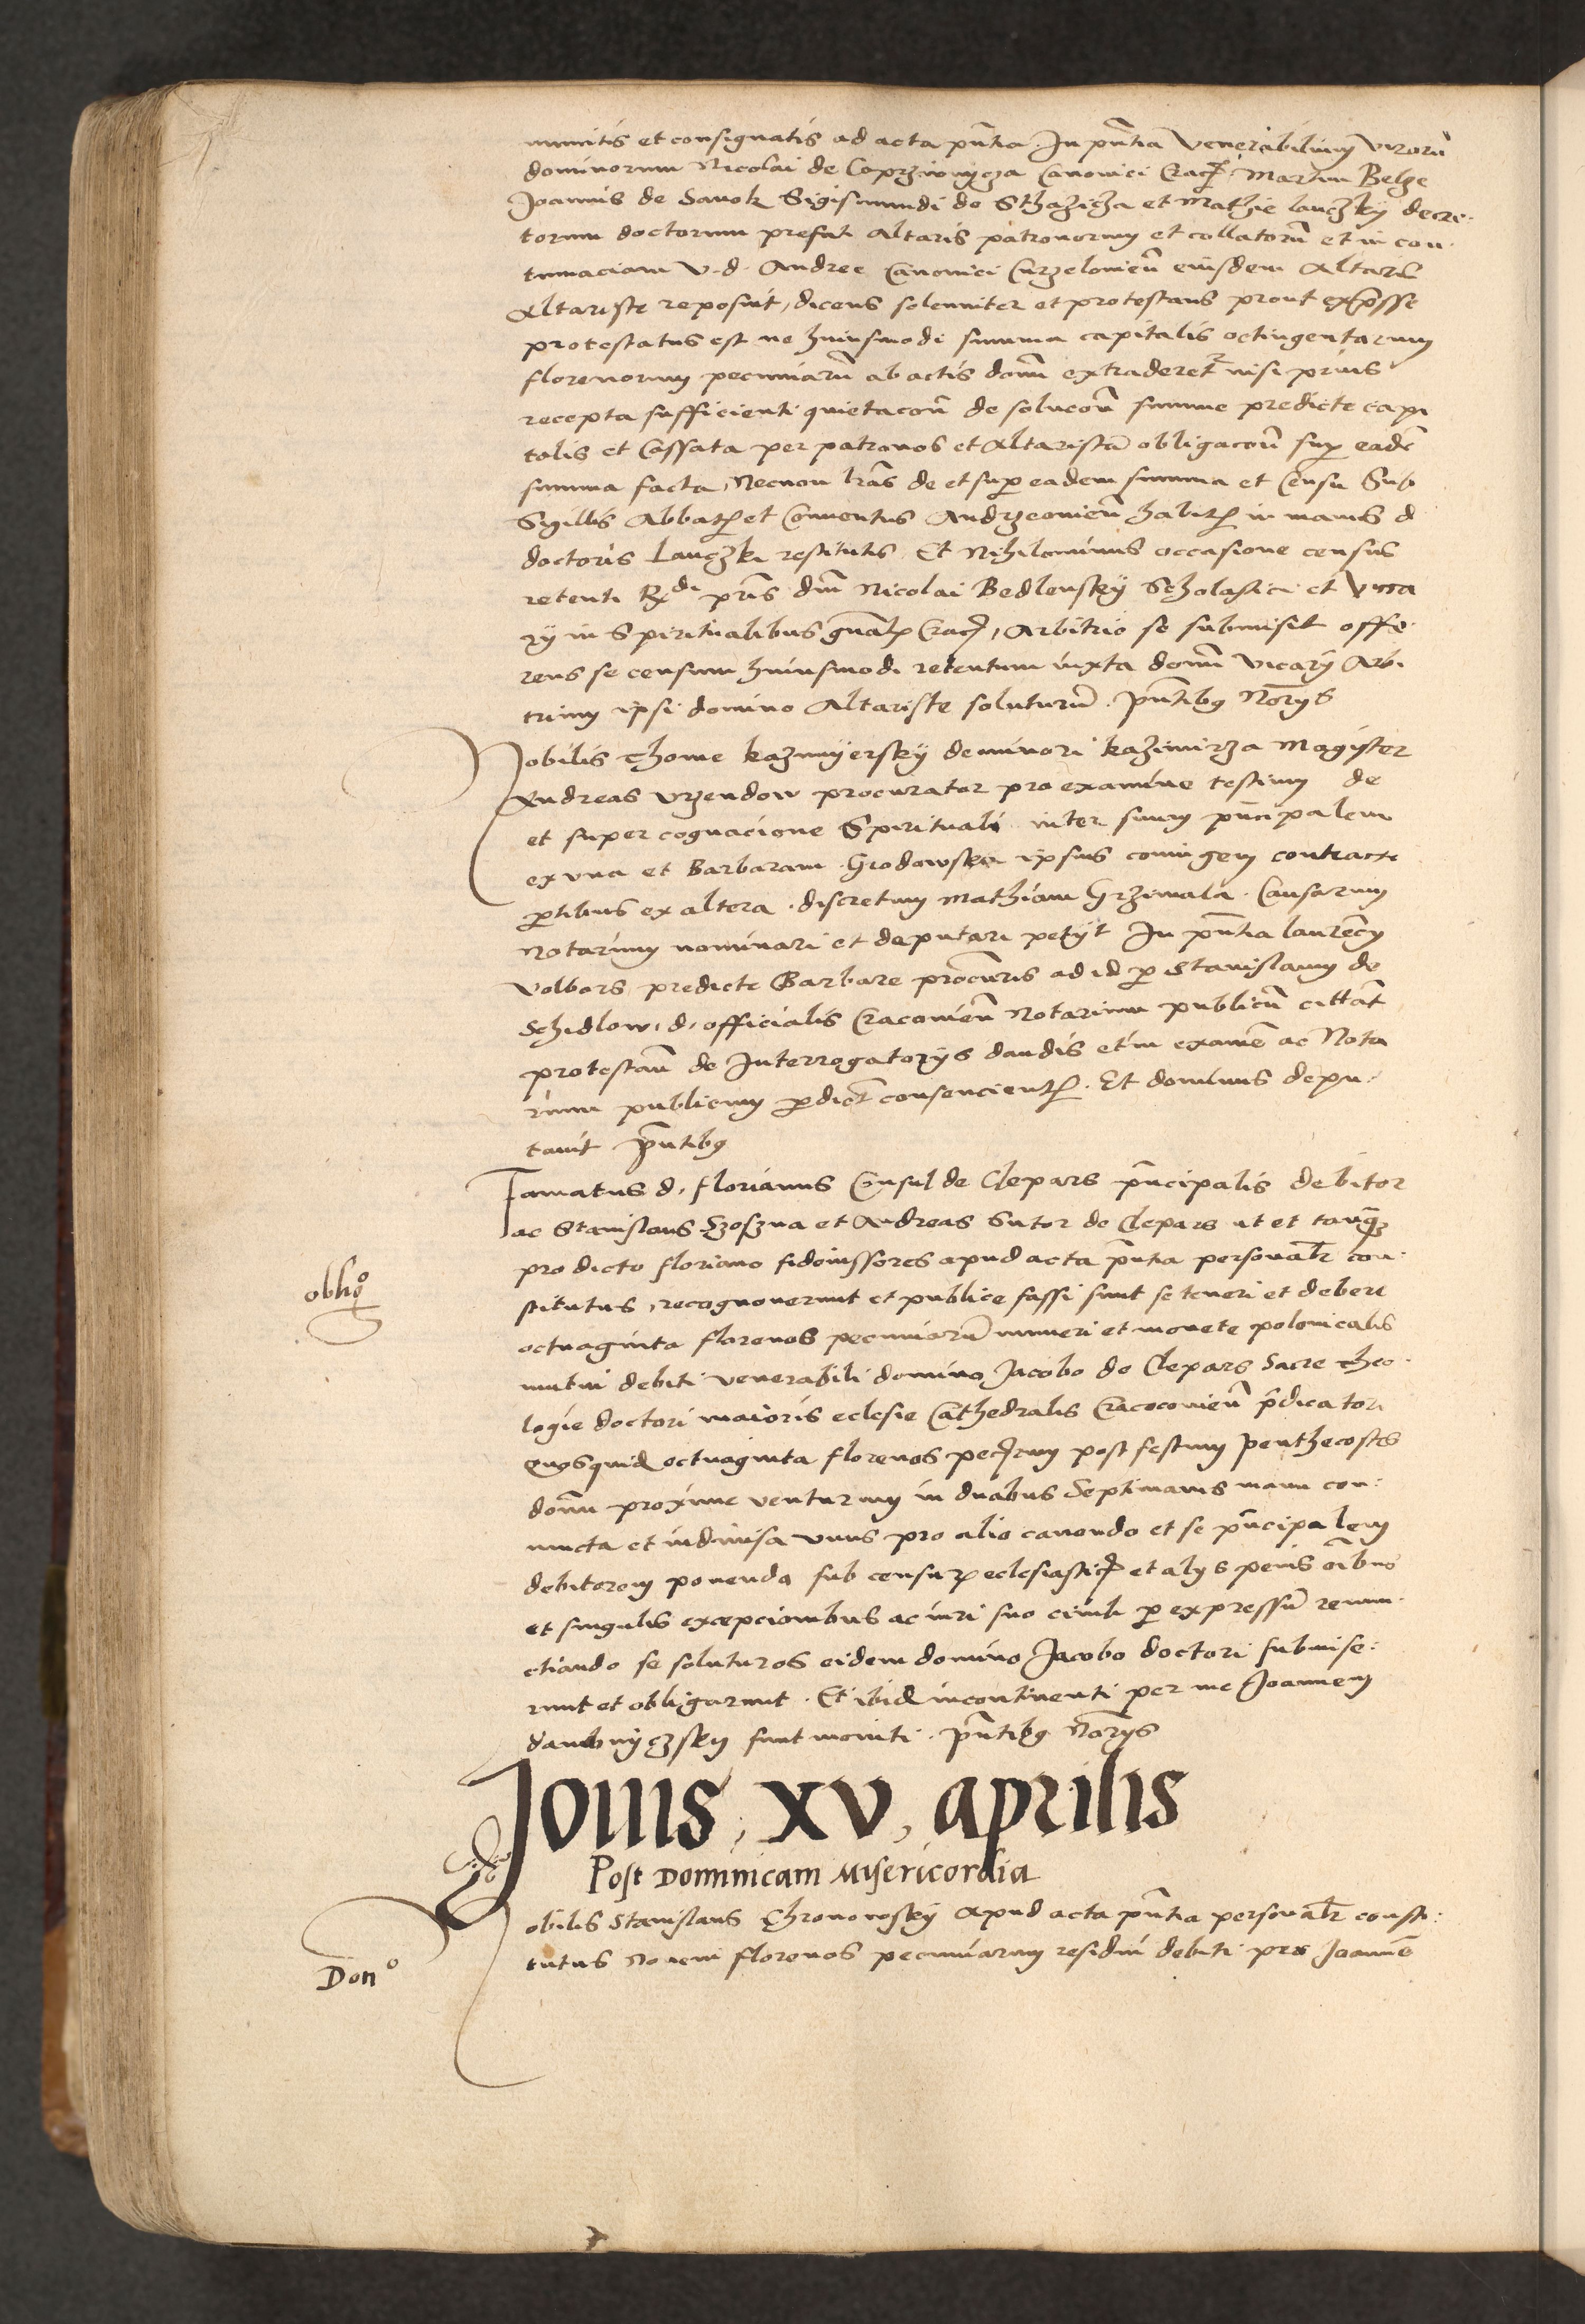 munitis et consignatis ad acta pñtia. In pñtia venerabilium virorũ
dominorum Nicolai de Coprziwnycza Canonici Crac. Martini Belze
Joannis de Sanok Sigismundi de Sthazicza et Mathie lanczky decre.
torum doctorum prefati Altaris patronorum et collatorũ et in con.
tumaciam v. d. Andree Canonici Curzelovieñ eiusdem Altaris
Altariste reposuit, dicens solenniter et protestans prout exp̃sse
protestatus est ne huiusmodi summa capitalis octingentarum
florenorum pecuniarũ ab actis doñ extraderetr nisi prius
recepta sufficienti quietacoñ de solucoñ summe predicte capi
talis et Cassata per patronos et Altaristã obligacoñ sup eadẽ
summa facta, Necnon lr̃as de et super eadem summa et Censu Sub
Sigillis Abbat. et Conventus Andrzeovieñ habit. in manus d
doctoris Lanczki restitutis. Et Nihilominus occasione census
retenti Rdi pr̃is dñi Nicolai Bedlensky Scholastici et Vica
rÿ in Spiritualibus gñal. Crac. Arbitrio se submisit offe.
rens se censum huiusmodi retentum iuxta domi Vicarÿ Arbi
trium ipsi domino Altariste soluturũ. pñtibq Norÿs
Nobilis thome kazmyersky de minori kazimirza Magister
Andreas vrzendow procurator pro examine testium de
et super cognacione Spirituali inter suum pñcipalem
ex una et Barbaram Grodowska ipsius coniugem contracte
ptibus ex altera. discretum Mathiam Grzimala. Causarum
Notarium nominari et deputari petÿt In pñtia laurẽcÿ
volbors predicte Barbare procuris ad id p Stanislaum de
Schidlow. d. officialis Cracovieñ Notarium publicũ cittat
protestañ de Interrogatorÿs dandis et in examẽ ac Nota
rium publicum pdict consencient. Et dominus depu.
tavit pñtibq
Famatus d. florianus Consul de Clepars pñcipalis debitor
ac Stanislaus et Andreas Sutor de Clepars ut et tanqz
pro dicto floriano fideiussores apud acta pñtia personalr con.
stitutus, recognoverunt et publice fassi sunt se teneri et debere
obligo
octuaginta florenos pecuniarũ numeri et monete polonicalis
mutui debiti venerabili domino Jacobo de Clepars Sacre theo.
logie doctori maioris eclesie Cathedralis Cracocovieñ p̃dicatori
Quosquid octuaginta florenos pecrum post festum penthecostes
domi proxime venturum in duabus Septimanis manu con:
iuncta et indivisa unus pro alio cavendo et se pñcipalem
debitorem ponendo sub censur eclesiastic. et alÿs penis oĩbus
et singulis excepcionibus ac iuri suo civili p expressũ renun.
ctiando se soluturos eidem domino Jacobo doctori submise:
runt et obligarunt. Et ibid incontinenti per me Joannem
sunt moniti. pñtibq Norÿs
Jovis, xv, aprilis
Post Dominicam Misericordia
Nobilis Stanislaus Chronowsky apud acta pñtia personalr consti:
Dono
tutus Novem florenos pecuniarum residui debiti pro Joannẽ